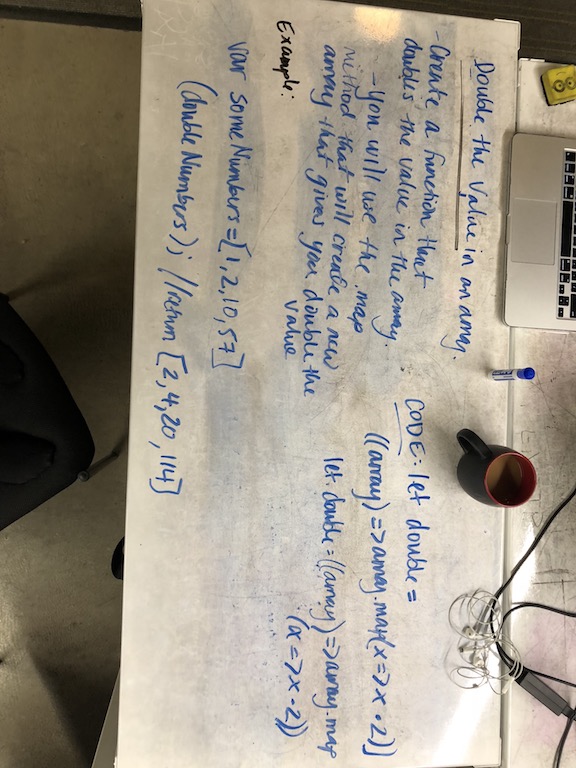 Double the Value in an array.
- Create a function that
doubles the value in the array.
- you will use the .map
method that will create a new
array that gives you double the
value
Example:
var someNumbers = [1, 2, 10, 57]
(doubleNumbers); //return [2, 4, 20, 114]
CODE: let double =
((array) => array.map(x => x • 2))
let double = ((array) => array.map
(x => x • 2))